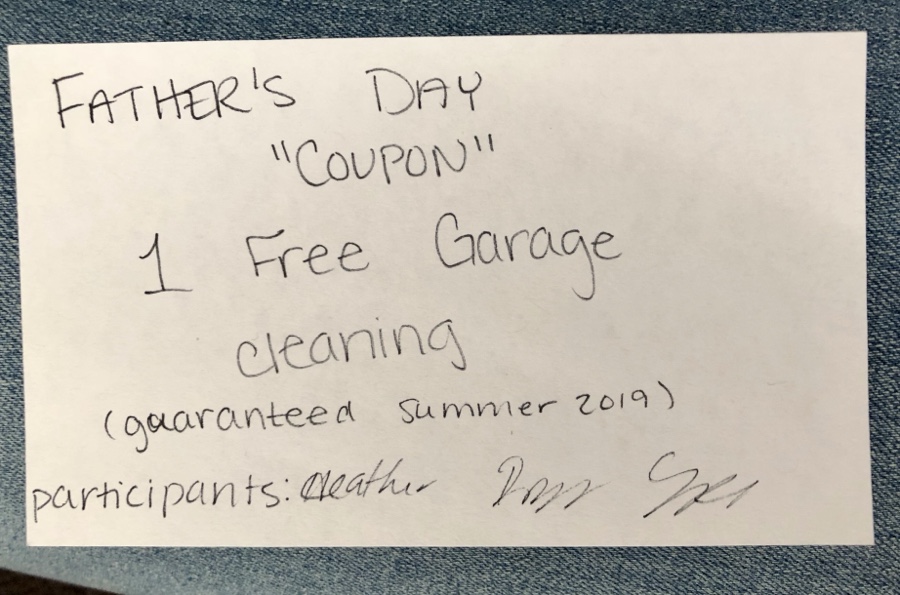 FATHER'S DAY
"COUPON"
1 Free Garage
cleaning
(guaranteed summer 2019)
participants: Heather